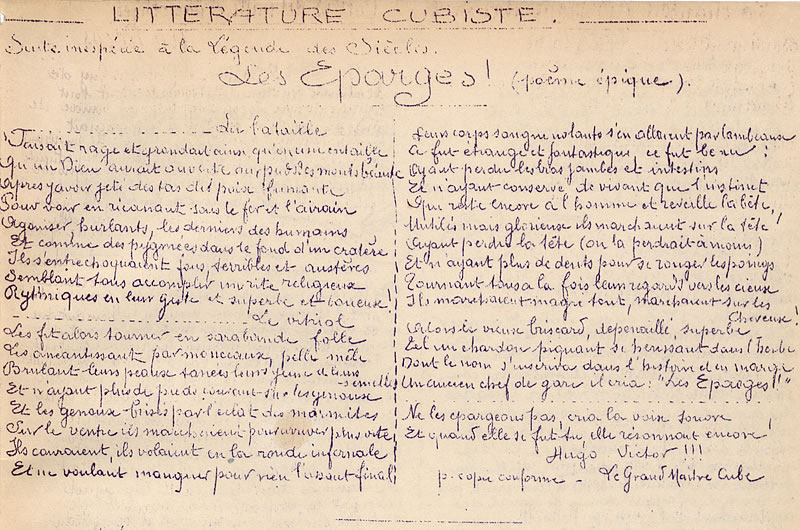 LITTERATURE CUBISTE.
Suite inespérée à la Légende des Siècles.
Les Eparges! (poëme épique).
La bataille
Faisait rage et grondait ainsi qu'en une entaille
Qu'un Dieu aurait ouverte aux pieds des monts béante
Après y avoir jeté des tas de poix fumante
Pour voir en ricanant sous le fer et l'airain
Agoniser, hurlants, les derniers des humains
Et comme des pygmées dans le fond d'un cratère
Ils s'entrechoquaient fous, terribles et austères
Semblant tous accomplir un rite religieux
Rythmiques en leur geste et superbe et boueux!
Le vitriol
Les fit alors tourner en sarabande folle
Les anéantissant par monceaux, pelle mêle
Brulant leurs peaux tannées leurs yeux et leurs
semelles
Et n'ayant plus de pieds courant sur les genoux
Et les genoux brisés par l'éclat des marmites
Sur le ventre ils marchaient pour arriver plus vite
Ils couraient, ils volaient en la ronde infernale
Et ne voulant manquer pour rien l'assaut final,
Leurs corps sanguinolants s'en allaient par lambeaux
Ce fut étrange et fantastique ce fut beau!
Ayant perdu les bras jambes et intestins
Et n'ayant conservé de vivant que l'instinct
Qui reste encore à l'homme et reveille la bête,
Mutilés mais glorieux ils marchaient sur la tête
Ayant perdu la tête (on la perdrait à moins)
Et n'ayant plus de dents pour se ronger les poings
Tournant tous à la fois leurs regards vers les cieux
Ils marchaient magré tout, marchaient sur les
Cheveux!
Alors un vieux briscard, dépenaillé, superbe
Tel un chardon piquant se herissant dans l'herbe
Dont le nom s'inscrira dans l'histoire et en marge
Un ancien chef de gare il cria: "Les Eparges!!"
Ne les épargeons pas, cria la voix sonore
Et quand elle se fut tu, elle résonnait encore!
Hugo Victor !!!
p. copie conforme - Le Grand Maitre Cube